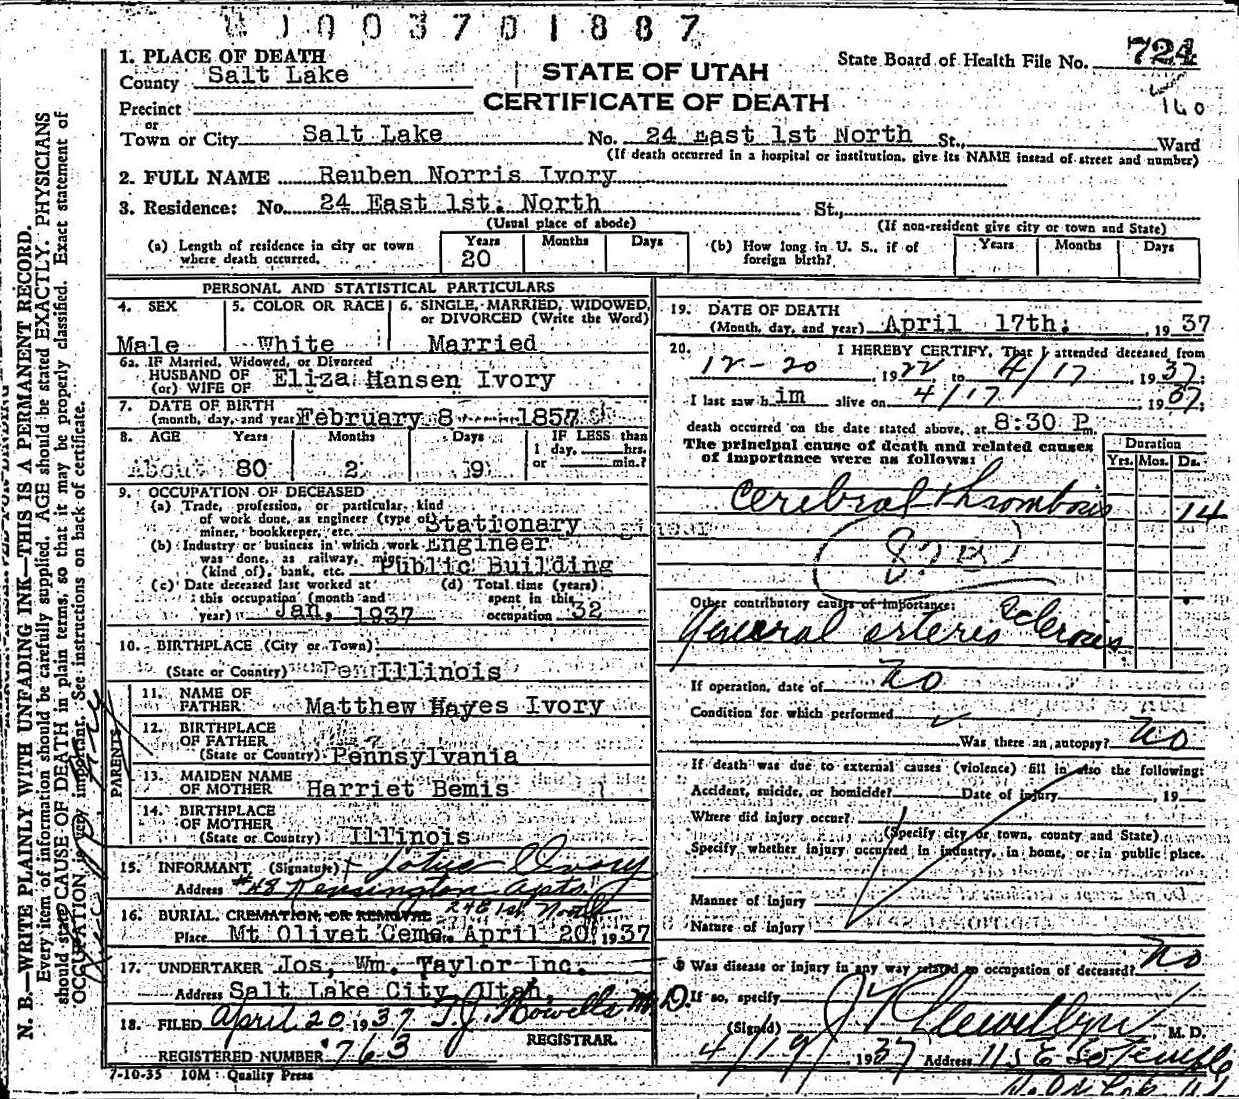 U 1 0 0 3 7 0 1 8 8 7
1. PLACE OF DEATH
County Salt Lake
Precinct
or
Town or City Salt Lake No. 24 East 1st North St., Ward
(If death occurred in a hospital or institution, give its NAME instead of street and number)
STATE OF UTAH
CERTIFICATE OF DEATH
State Board of Health File No. 724
160
2. FULL NAME Reuben Norris Ivory
3. Residence: No. 24 East 1st. North St.,
(Usual place of abode) (If non-resident give city or town and State)
(a) Length of residence in city or town where death occurred. Years 20 Months Days
(b) How long in U. S., if of foreign birth? Years Months Days
PERSONAL AND STATISTICAL PARTICULARS
4. SEX Male
5. COLOR OR RACE White
6. SINGLE, MARRIED, WIDOWED, or DIVORCED (Write the Word) Married
6a. IF Married, Widowed, or Divorced
HUSBAND OF
(or) WIFE OF Eliza Hansen Ivory
7. DATE OF BIRTH
(month, day, and year) February 8 1857
8. AGE Years Months Days IF LESS than
About 80 2 9 1 day, hrs. or min.?
9. OCCUPATION OF DECEASED
(a) Trade, profession, or particular kind
of work done, as engineer (type of
miner, bookkeeper, etc. Stationary
(b) Industry or business in which work Engineer
was done, as railway, mine
(kind of), bank, etc. Public Building
(c) Date deceased last worked at
this occupation (month and
year) Jan, 1937
(d) Total time (years)
spent in this
occupation 32
10. BIRTHPLACE (City or Town)
(State or Country) Illinois
PARENTS
11. NAME OF
FATHER Matthew Hayes Ivory
12. BIRTHPLACE
OF FATHER
(State or Country) Pennsylvania
13. MAIDEN NAME
OF MOTHER Harriet Bemis
14. BIRTHPLACE
OF MOTHER
(State or Country) Illinois
15. INFORMANT (Signature) Lotus Ivory
Address #48 Kensington Apts
16. BURIAL, CREMATION, OR REMOVAL
Place Mt Olivet Ceme Date April 20, 1937
17. UNDERTAKER Jos, Wm. Taylor Inc.
Address Salt Lake City, Utah,
18. FILED April 20 1937 T.J. Howells M.D.
REGISTRAR.
REGISTERED NUMBER 763
7-10-35 10M Quality Press
19. DATE OF DEATH
(Month, day, and year) April 17th; , 1937
20. I HEREBY CERTIFY, That I attended deceased from
12-20, 1922 to 4/17, 1937;
I last saw him alive on 4/17 1937;
death occurred on the date stated above, at 8:30 P m.
The principal cause of death and related causes
of importance were as follows:
Duration
Yrs. Mos. Ds.
Cerebral thrombosis 14
82B
Other contributory causes of importance:
General arterio sclerosis
If operation, date of no
Condition for which performed
Was there an autopsy? no
If death was due to external causes (violence) fill in also the following:
Accident, suicide, or homicide? Date of injury , 19
Where did injury occur?
(Specify city or town, county and State)
Specify whether injury occurred in industry, in home, or in public place.
Manner of Injury
Nature of injury
Was disease or injury in any way related to occupation of deceased? No
If so, specify
(Signed) Llewellyn, M. D.
4/19, 1937 Address 115 E So Temple
N. B.—WRITE PLAINLY WITH UNFADING INK—THIS IS A PERMANENT RECORD.
Every item of information should be carefully supplied. AGE should be stated EXACTLY. PHYSICIANS
should state CAUSE OF DEATH in plain terms, so that it may be properly classified. Exact statement of
OCCUPATION is very important. See instructions on back of certificate.